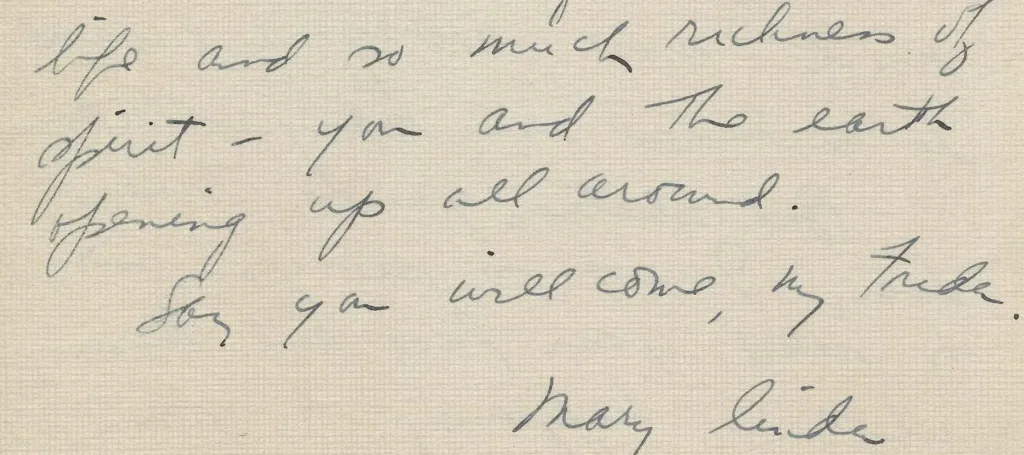 life and so much richness of
spirit – you and the earth
opening up all around.
Say you will come, my Frida.
Mary linda